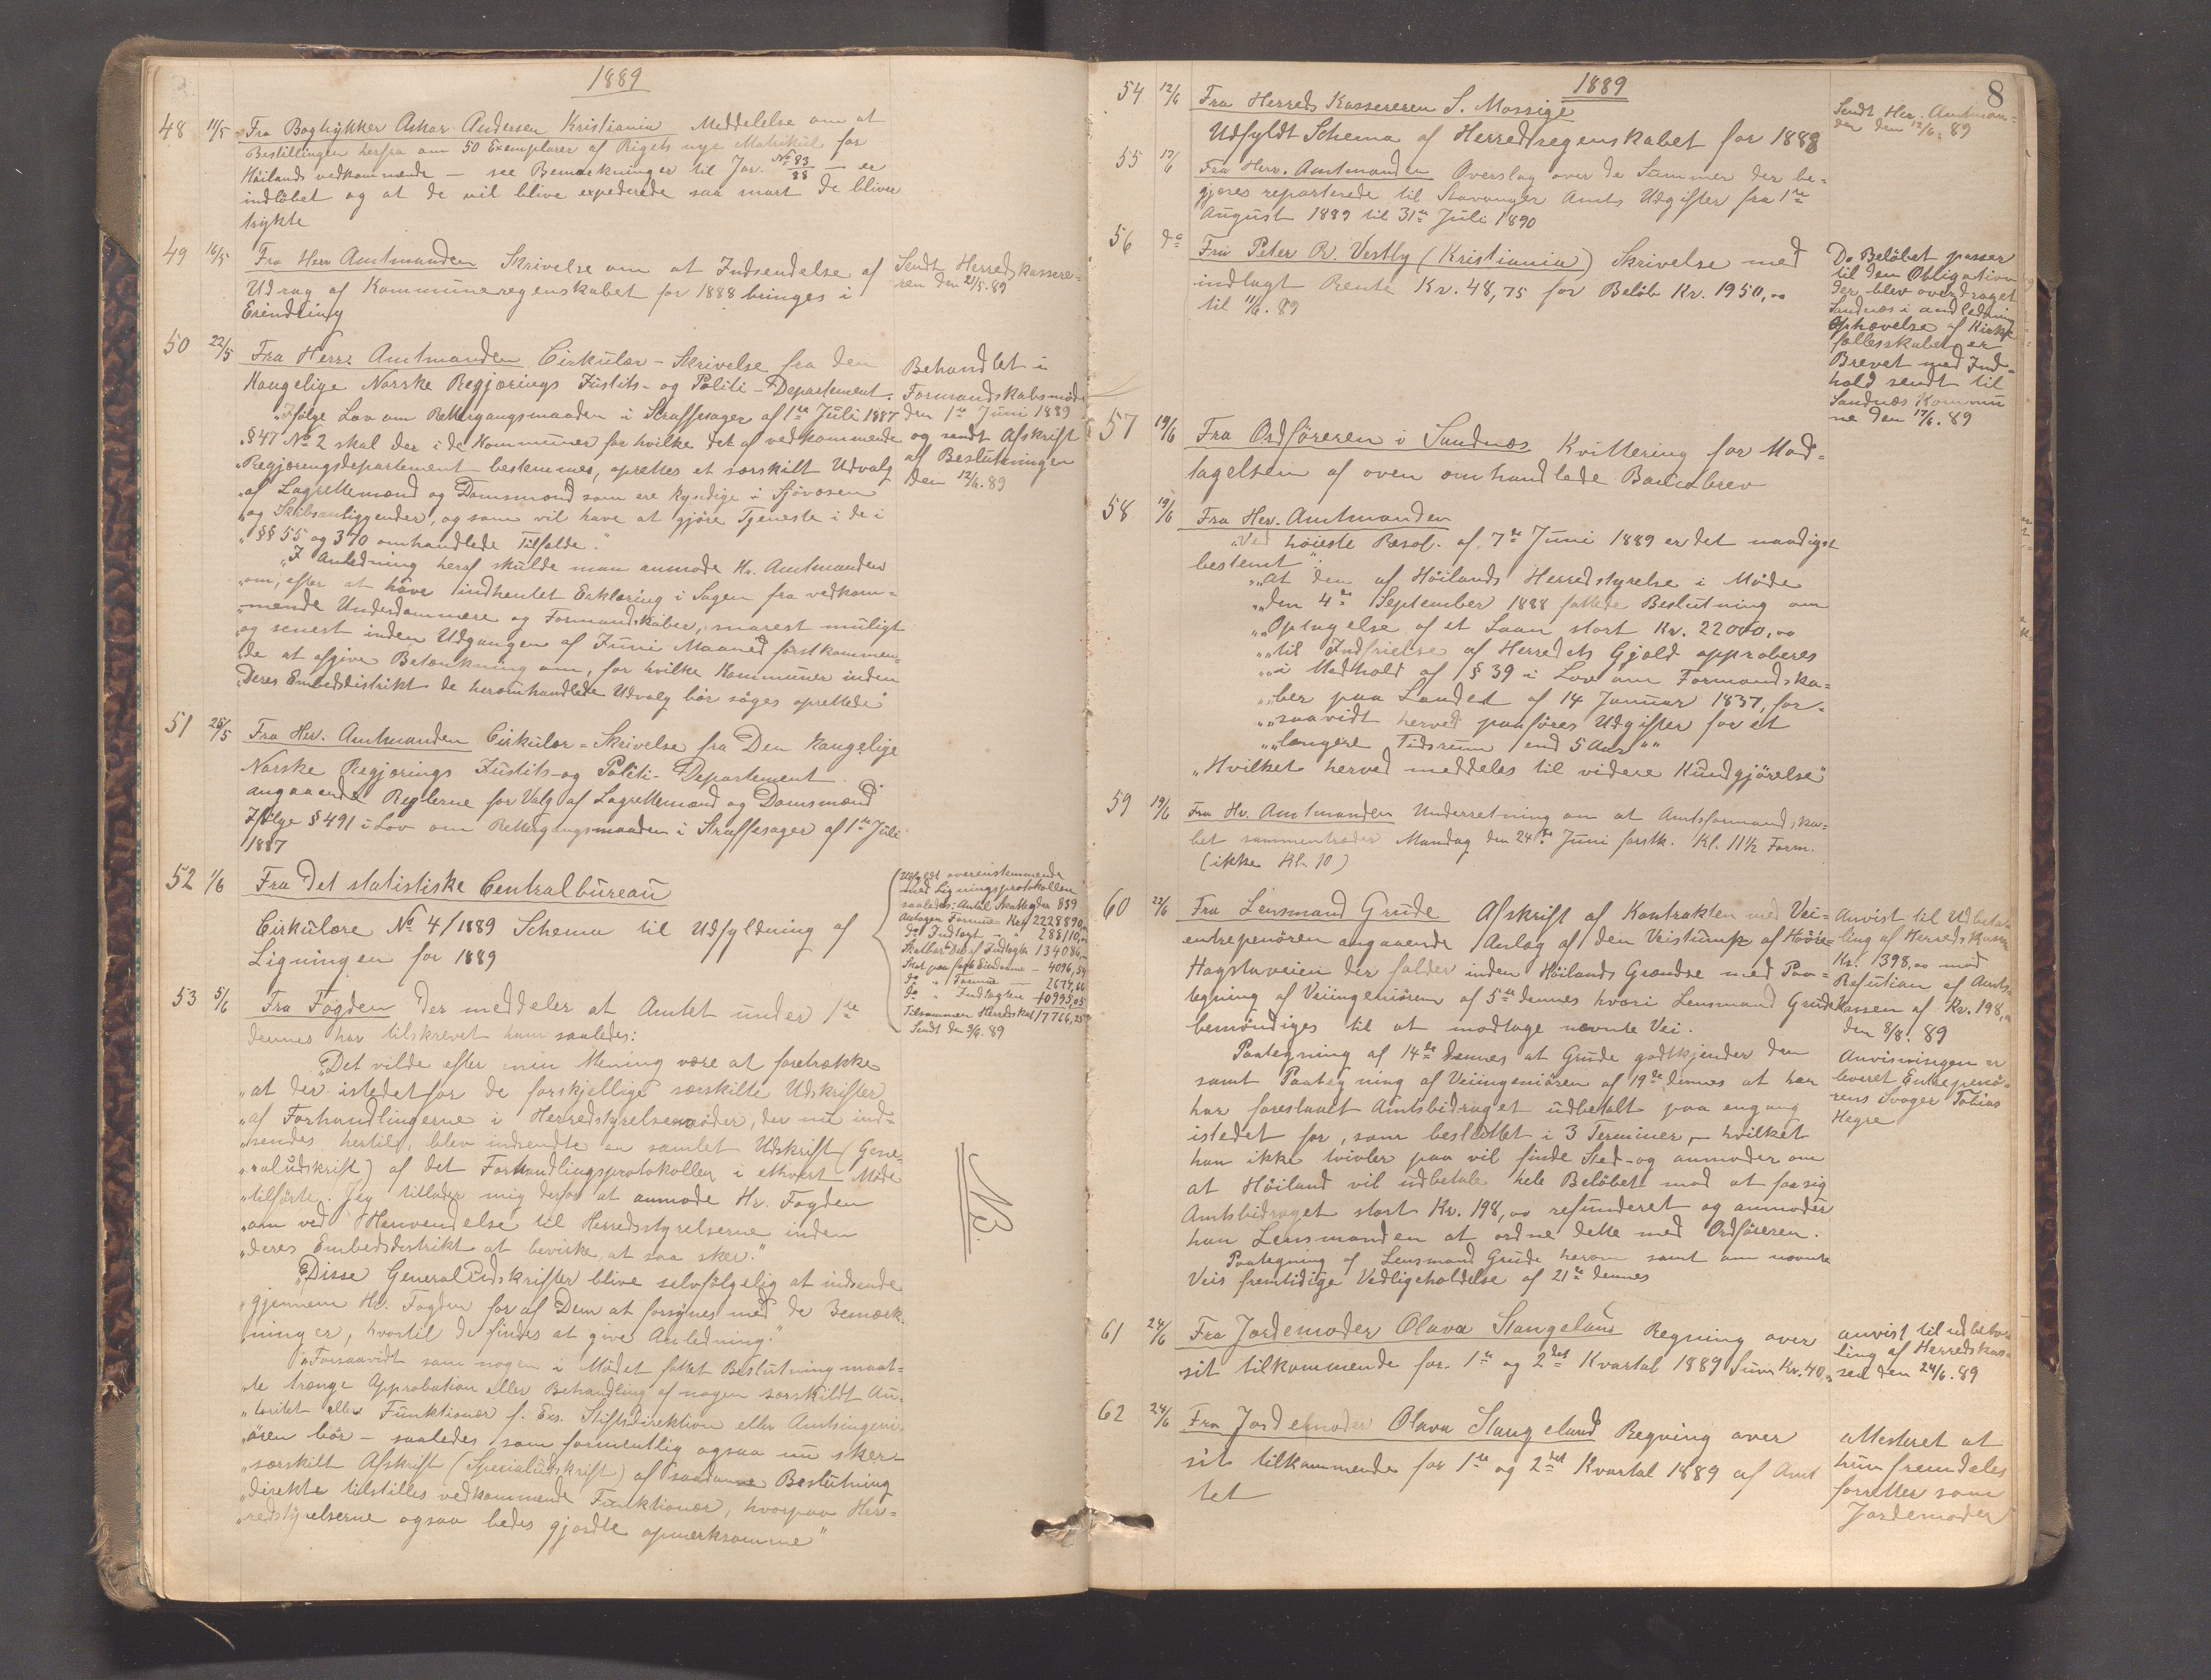 1889
48 11/5 Fra Bogtrykker Oskar Andersen Kristiania Meddelelse om at
Bestillingen herfra om 50 Exemplarer af Rigets nye Matrikul for
Höilands vedkommende – see Bemærkninger til Jor. No 83/88 – er
indlöbet og at de vil blive expederede saa snart de bliver
trykte
49 16/5 Fra Herr Amtmanden Skrivelse om at Indsendelse af
Udrag af Kommuneregenskabet for 1888 bringes i
Erindring
Sendt Herredskassere-
ren den 21/5. 89
50 22/5 Fra Herr Amtmanden Cirkulær-Skrivelse fra den
Kongelige Norske Regjerings Justits- og Politi-Departement.
„Ifölge Lov om Rettergangsmaaden i Straffesager af 1ste Juli 1887
„§ 47 No 2 skal der i de Kommuner for hvilke det af vedkommende
„Regjeringsdepartement bestemmes, oprettes et særskilt Udvalg
„af Lagrettemænd og Domsmænd som ere kyndige i Sjövæsen
„og Skibsanliggender, og som vil have at gjöre Tjeneste i de i
„§§ 55 og 370 omhandlede Tilfælde."
„I Anledning heraf skulde man anmode Hr. Amtmanden
„om, efter at have indhentet Erklæring i Sagen fra vedkom=
„mende Underdommere og Formandskaber, snarest muligt
„og senest inden Udgangen af Juni Maaned förstkommen=
„de at afgive Betænkning om, for hvilke Kommuner inden
„Deres Embedsdistrikt de heromhandlede Udvalg bör söges oprettede"
Behandlet i
Formandskabsmöde
den 1ste Juni 1889
og sendt Afskrift
af Beslutningen
den 12/6. 89
51 25/5 Fra Hr. Amtmanden Cirkulær=Skrivelse fra Den kongelige
Norske Regjerings Justits- og Politi-Departement
angaaende Reglerne for Valg af Lagrettemænd og Domsmænd
Ifölge § 491 i Lov om Rettergangsmaaden i Straffesager af 1ste Juli
1887
52 1/6 Fra Det statistiske Centralbureau
Cirkulære No 4/1889 Schema til Udfyldning af
Ligningen for 1889
Udfyldt overensstemmende
med Ligningsprotokollen
saaledes: Antal Skatteydere 839
Antagen Formue Kr 2228890,
do Indtægt „ „ 288110,
Skatbar Del af Indtægten 134086,
Skat paa faste Eiendomme – 4096,54
do „ Formue – 2674,66
do „ Indtægten 10995,05
Tilsammen Herredskat 17766,25
Sendt den 3/6. 89
53 5/6 Fra Fogden der meddeler at Amtet under 1ste
dennes har tilskrevet ham saaledes:
„Det vilde efter min Mening være at foretrække
„at der istedetfor de forskjellige særskilte Udskrifter
„af Forhandlingerne i Herredstyrelsemöder, der nu ind=
„sendes hertil, blev indsendte en samlet Udskrift (Gene=
„raludskrift) af det Forhandlingsprotokollen i ethvert Möde
„tilförte. Jeg tillader mig derfor at anmode Hr. Fogden
„om ved Henvendelse til Herredsstyrelserne inden
„deres Embedsdistrikt at bevirke, at saa sker."
„Disse General Udskrifter blive selvfölgelig at indsende
„gjennem Hr. Fogden for af Dem at forsynes med de Bemærk-
„ninger, hvortil de findes at give Anledning."
„Forsaavidt som nogen i Mödet fattet Beslutning maat=
„te trænge Approbation eller Behandling af nogen særskildt Au-
„toritet eller Funktionær f. Ex. Stiftsdirektion eller Amtsingeni-
„ören bör – saaledes som formentlig ogsaa nu sker –
„særskilt Afskrift (Specialudskrift) af saadanne Beslutning
„direkte tilstilles vedkommende Funktionær, hvorpaa Her=
„redstyrelserne ogsaa bedes gjordte opmerksomme"
NB.
8
1889
54 12/6 Fra Herreds Kassereren S. Mossige
Udfyldt Schema af Herredsregenskabet for 1888
Sendt Hr. Amtman=
den den 12/6. 89
55 17/6 Fra Herr. Amtmanden Overslag over de Summer der be=
gjæres reparterede til Stavanger Amts Udgifter fra 1ste
August 1889 til 31te Juli 1890
56 do Fra Peter R. Vestly (Kristiania) Skrivelse med
indlagt Rente Kr. 48,75 for Belöb Kr. 1950,00
til 11/6. 89
Da Belöbet passer
til den Obligation
der blev overdraget
Sandnæs i andledning
Ophævelse af Kirke
fællesskabet er
Brevet med Ind=
hold sendt til
Sandnæs Kommu
ne den 17/6. 89
57 19/6 Fra Ordföreren i Sandnæs Kvittering for Mod=
tagelsen af oven omhandlede Bancobrev
58 19/6 Fra Her. Amtmanden
„Ved höieste Resol. af 7de Juni 1889 er det naadigst
bestemt"
„„At den af Höilands Herredstyrelse i Möde
„„den 4de September 1888 fattede Beslutning om
„„Optagelse af et Laan stort Kr. 22000,00
„„til Indfrielse af Herredets Gjæld approberes
„„i Medhold af § 39 i Lov om Formandska=
„„ber paa Landet af 14 Januar 1837, for-
„„saavidt herved paaföres Udgifter for et
„„længere Tidsrum end 5 Aar""
„Hvilket herved meddeles til videre Kundgjörelse"
59 19/6 Fra Hr. Amtmanden Underretning om at Amtsformandska=
bet sammentræder Mandag den 24de Juni førstk. Kl. 11½ Form.
(ikke Kl. 10)
60 22/6 Fra Lensmand Grude Afskrift af Kontrakten med Vei=
entrepenören angaaende Anlæg af den Veistump af Höile=
Hogstaveien der falder inden Höilands Grændse med Paa=
tegning af Veiingeniören af 5te dennes hvori Lensmand Grude
bemöndiges til at modtage nævnte Vei.
Paategning af 14de dennes at Grude godtkjender den
samt Paategning af Veiingeniören af 19de dennes at han
har foreslaaet Amtsbidraget udbetalt paa engang
istedet for, som besluttet i 3 Terminer, – hvilket
han ikke tvivler paa vil finde Sted – og anmoder om
at Höiland vil udbetale hele Belöbet mod at faa sig
Amtsbidraget stort Kr. 198,00 refunderet og anmoder
han Lensmanden at ordne dette med Ordföreren.
Paategning af Lensmand Grude herom samt om nævnte
Veis fremtidige Vedligeholdelse af 21de dennes
Anvist til Udbeta
ling af Herredskassen
Kr. 398,00 mod
Refution af Amts
kassen af Kr. 198,
den 8/8. 89
Anvisningen er
leveret Entrepenö-
rens Svoger Tobias
Hegre
61 24/6 Fra Jordemoder Olava Stangeland Regning over
sit tilkommende for 1ste og 2det Kvartal 1889 Sum Kr. 40,
anvist til udbeta
ling af Herredskas=
sen den 24/6. 89
62 24/6 Fra Jordemoder Olava Stangeland Regning over
sit tilkommende for 1ste og 2det Kvartal 1889 af Amt
tet
attesteret at
hun fremdeles
forretter som
Jordemoder